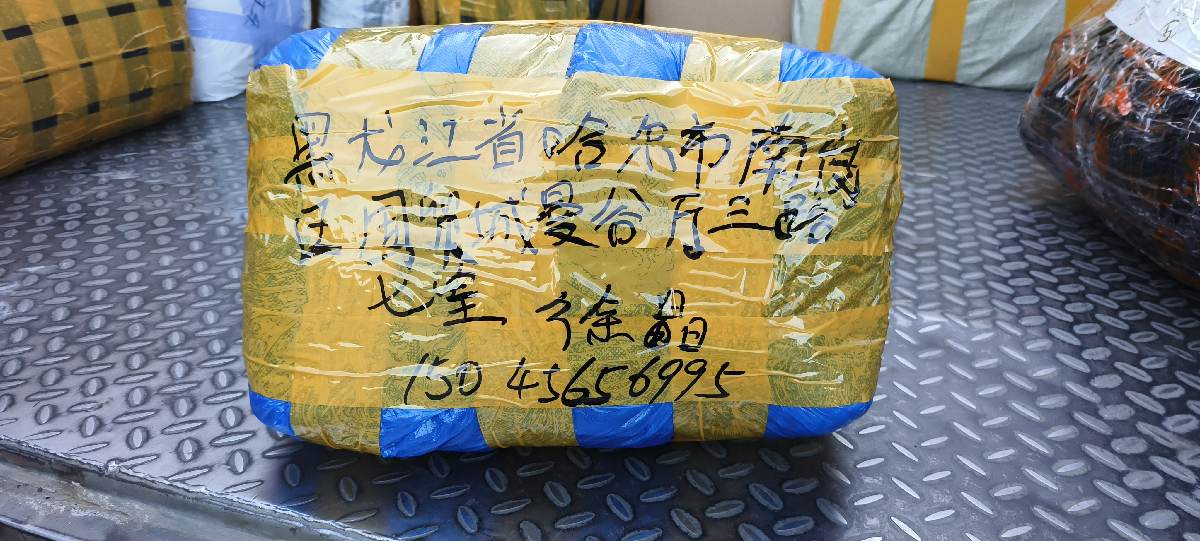 黑龙江省哈尔市南岗
区国际城曼谷厅三路
七室 徐晶
150 45656995